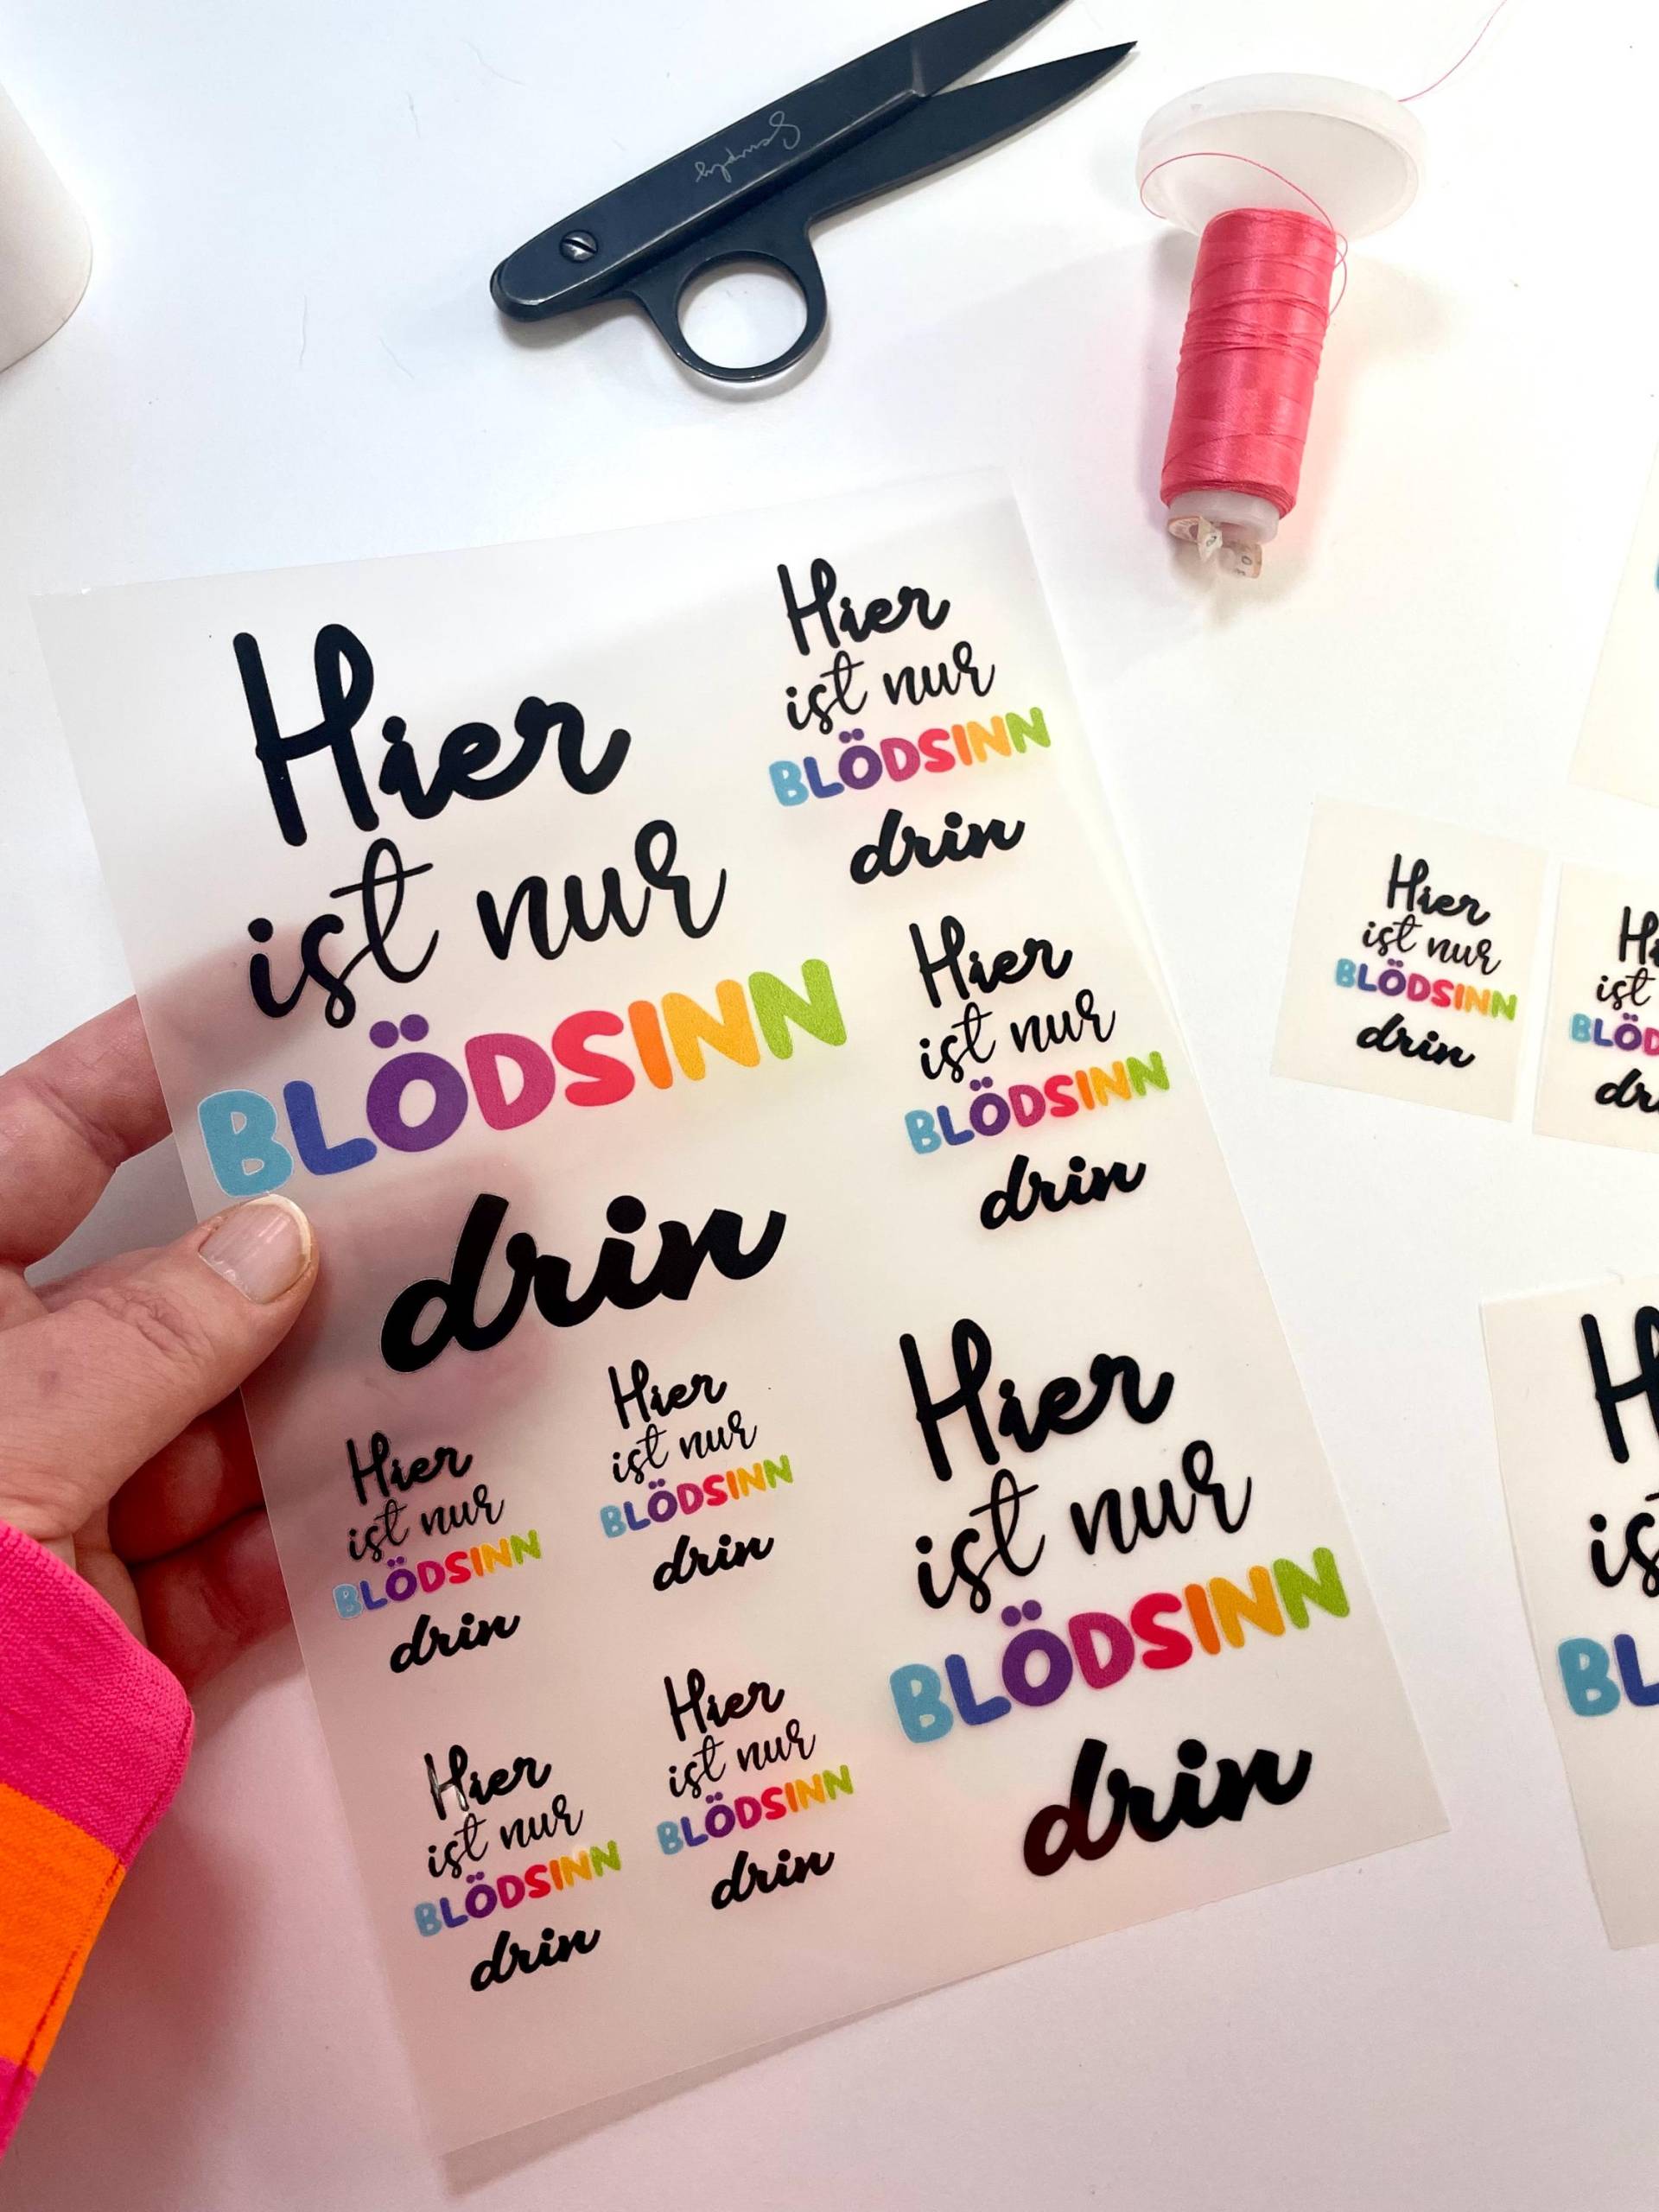 Snaply
Hier
ist nur
BLÖDSINN
drin
Hier
ist nur
BLÖDSINN
drin
Hier
ist nur
BLÖDSINN
drin
Hier
ist nur
BLÖDSINN
drin
Hier
ist nur
BLÖDSINN
drin
Hier
ist nur
BLÖDSINN
drin
Hier
ist nur
BLÖDSINN
drin
Hier
ist nur
BLÖDSINN
drin
Hier
ist nur
BLÖDSINN
drin
ist